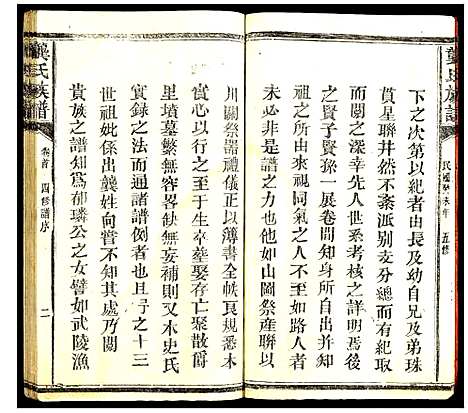 龔氏族譜
民國癸未年 五修
下之次第以紀者由長及幼自兄及弟珠
貫星聯井然不紊派別支分總而有貫
而關之深幸先人世系考核之詳明爲後
之賢子賢孫一展卷間知身所自出幷知
祖之所由來視同氣之人不至如路人者
未必非是譜之力也他如山圖祭產聯以
川關祭器禮儀正以簿書全帙良規悉本
實心以行之至于生卒葬娶存亡聚散爵
里墳墓繁無容畧缺無妄補則又本史氏
實錄之法而通諸譜例者也且弓之十三
世祖妣係出龔姓向嘗不知其處乃閱
貴族之譜知爲郁璘公之女譬如武陵漁
龔氏族譜
卷首 四修譜序
二